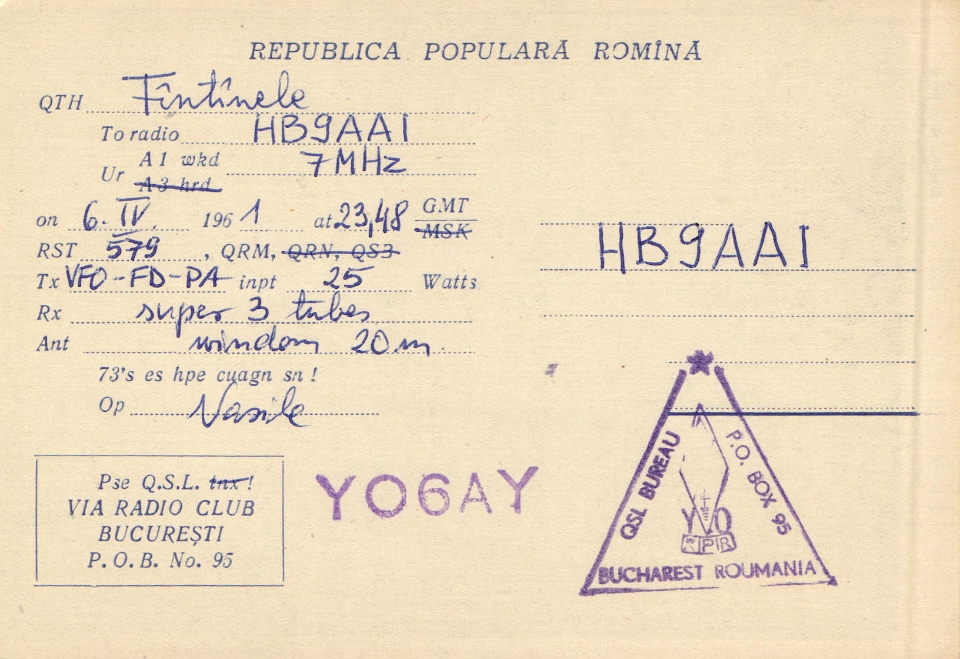 REPUBLICA POPULARĂ ROMÎNĂ
QTH Fîntînele
To radio HB9AAI
Ur A1 wkd 7 MHz
A3 hrd
on 6. IV. 1961 at 23,48 GMT
MSK
RST 579, QRM, QRN, QSB
Tx VFO-FD-PA inpt 25 Watts
Rx super 3 tubes
Ant windom 20 m
73's es hpe cuagn sn!
Op Vasile
HB9AAI
Pse Q.S.L. tnx!
VIA RADIO CLUB
BUCUREŞTI
P.O.B. No. 95
YO6AY
QSL BUREAU
P.O. BOX 95
YO
RPR
BUCHAREST ROUMANIA